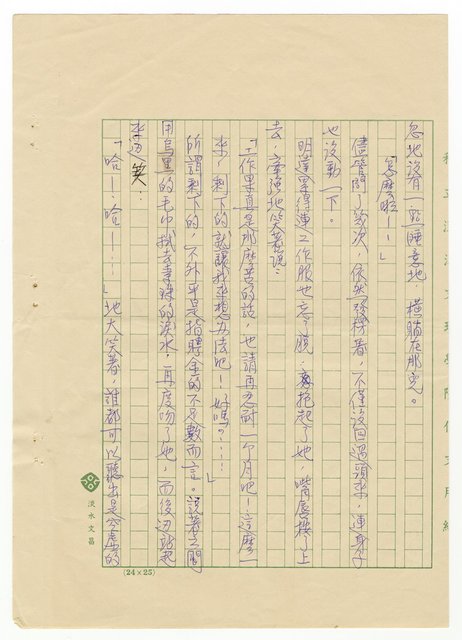 忽地沒有一點睡意地,橫躺在那兒。
「怎麼啦!—」
儘管問了幾次,依然 著,不僅沒回過頭來,連身子
也沒動一下。
明達累得連工作服也忘了脫, 抱起了她,嘴唇樓了上
去,牽強地笑著說:
「工作果真是那麼苦的話,也請再忍耐一個月吧!這麼一
來,剩下的就讓我來想辦法吧!好嗎?……」
所謂剩下的,不外乎是指聘金的不足數而言。說著之間
用烏黑的毛巾拭去幸珠的淚水,再度吻了她,而後 站起
來 笑:
「哈!—哈!—……」她大笑著,誰都可以聽出是空虛的
淡水文昌
(24×25)